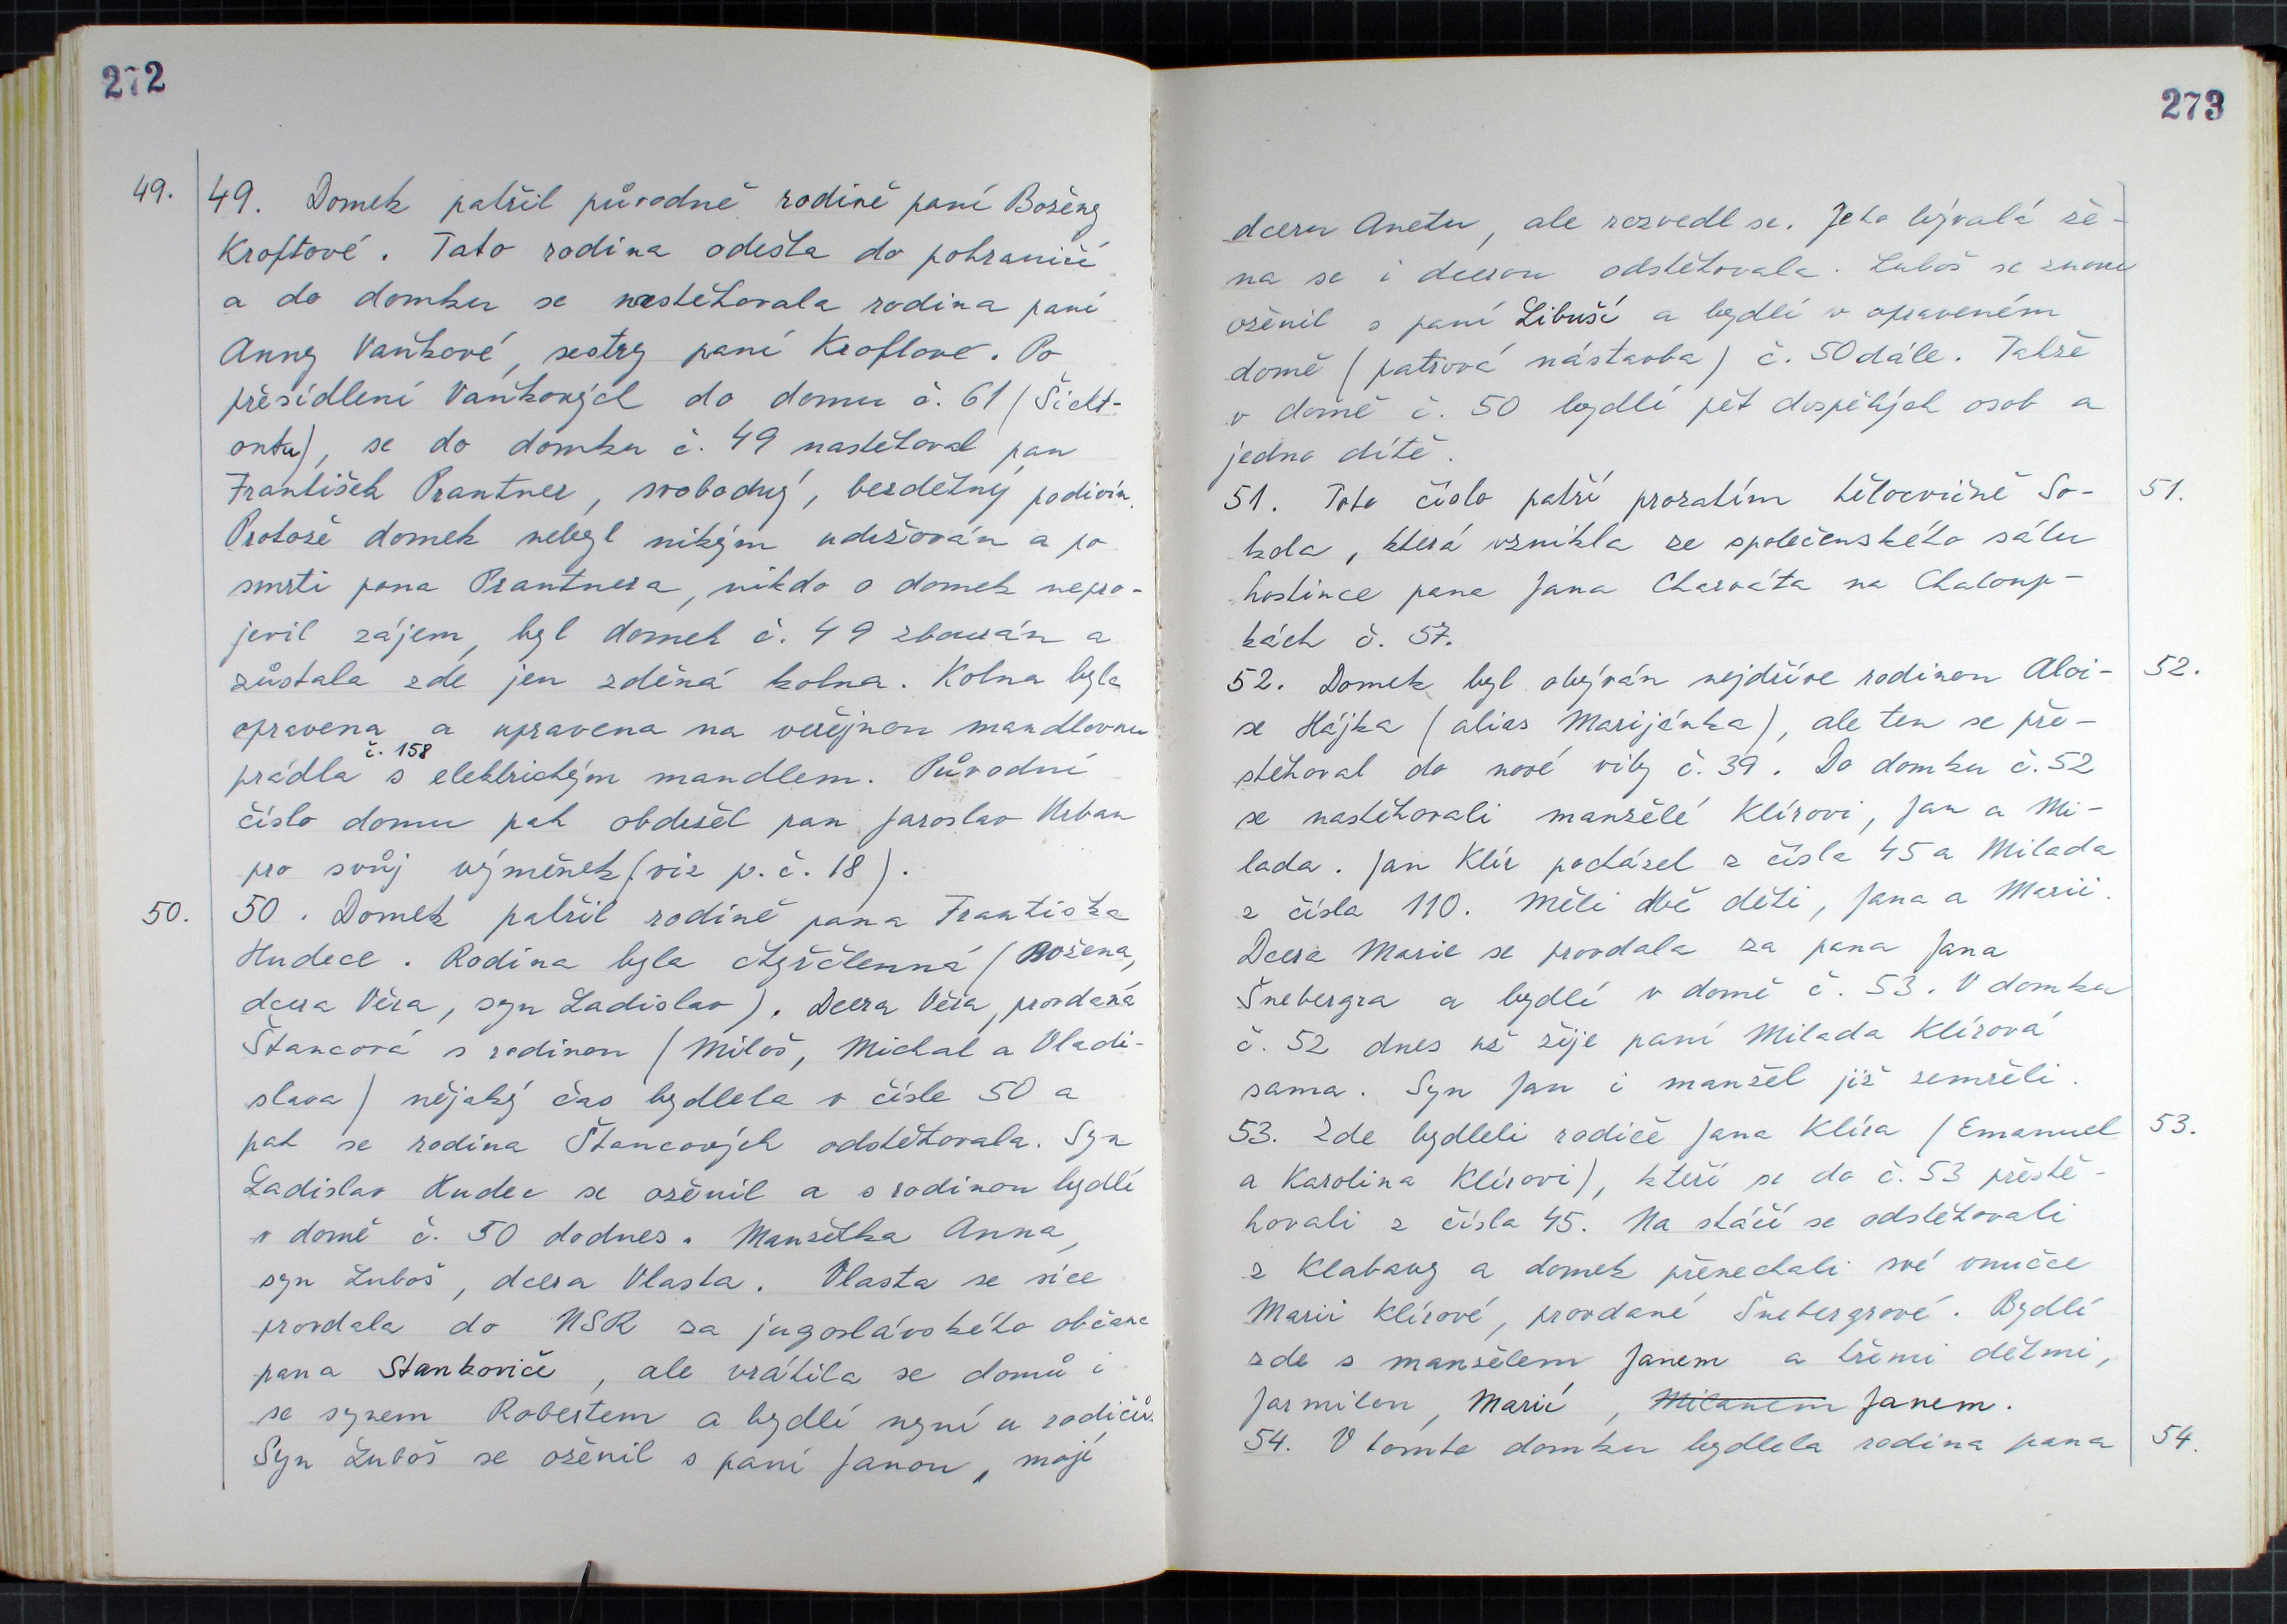 272
49. 49. Domek patřil původně rodině paní Boženy
Kroftové. Tato rodina odešla do pohraničí
a do domku se nastěhovala rodina paní
Anny Vaňkové, sestry paní Kroftové. Po
přesídlení Vaňkových do domu č. 61 (Šicht-
ontu), se do domku č. 49 nastěhoval pan
František Prantner, svobodný, bezdětný podivín.
Protože domek nebyl nikým udržován a po
smrti pana Prantnera, nikdo o domek nepro-
jevil zájem, byl domek č. 49 zbourán a
zůstala zde jen zděná kolna. Kolna byla
opravena a upravena na veřejnou mandlovnu
č. 158
prádla s elektrickým mandlem. Původní
číslo domu pak obdržel pan Jaroslav Urban
pro svůj výměnek (viz p. č. 18).
50. 50. Domek patřil rodině pana Františka
Hudece. Rodina byla čtyřčlenná (Božena,
dcera Věra, syn Ladislav). Dcera Věra, provdaná
Štancová s rodinou (Miloš, Michal a Vladi-
slava) nějaký čas bydlela v čísle 50 a
pak se rodina Štancových odstěhovala. Syn
Ladislav Hudec se oženil a s rodinou bydlí
v domě č. 50 dodnes. Manželka Anna,
syn Luboš, dcera Vlasta. Vlasta se sice
provdala do NSR za jugoslávského občana
pana Stankoviče, ale vrátila se domů i
se synem Robertem a bydlí nyní u rodičů.
Syn Luboš se oženil s paní Janou, mají
273
dceru Anetu, ale rozvedl se. Jeho bývalá že-
na se i dcerou odstěhovala. Luboš se znovu
oženil s paní Libuší a bydlí v opraveném
domě (patrová nástavba) č. 50 dále. Takže
v domě č. 50 bydlí pět dospělých osob a
jedno dítě.
51. Toto číslo patří prozatím tělocvičně So- 51.
kola, která vznikla ze společenského sálu
hostince pana Jana Charváta na Chaloup-
kách č. 57.
52. Domek byl obýván nejdříve rodinou Aloi- 52.
se Hájka (alias Marijánka), ale ten se pře-
stěhoval do nové vily č. 39. Do domku č. 52
se nastěhovali manželé Klírovi, Jan a Mi-
lada. Jan Klír pocházel z čísla 45 a Milada
z čísla 110. Měli dvě děti, Jana a Marii.
Dcera Marie se provdala za pana Jana
Šnebergra a bydlí v domě č. 53. V domku
č. 52 dnes už žije paní Milada Klírová
sama. Syn Jan i manžel již zemřeli.
53. Zde bydleli rodiče Jana Klíra (Emanuel 53.
a Karolina Klírovi), kteří se do č. 53 přestě-
hovali z čísla 45. Na stáří se odstěhovali
z Klabavy a domek přenechali své vnučce
Marii Klírové, provdané Šnebergrové. Bydlí
zde s manželem Janem a třemi dětmi,
Jarmilou, Marií, Milanem Janem.
54. V tomto domku bydlela rodina pana 54.